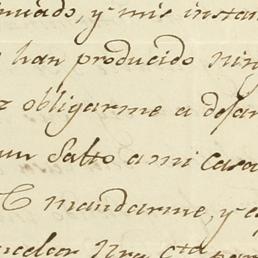 nuado, y mis instan
han producido nin
obligarme a dejar
un salto a mi casa
mandarme, y e